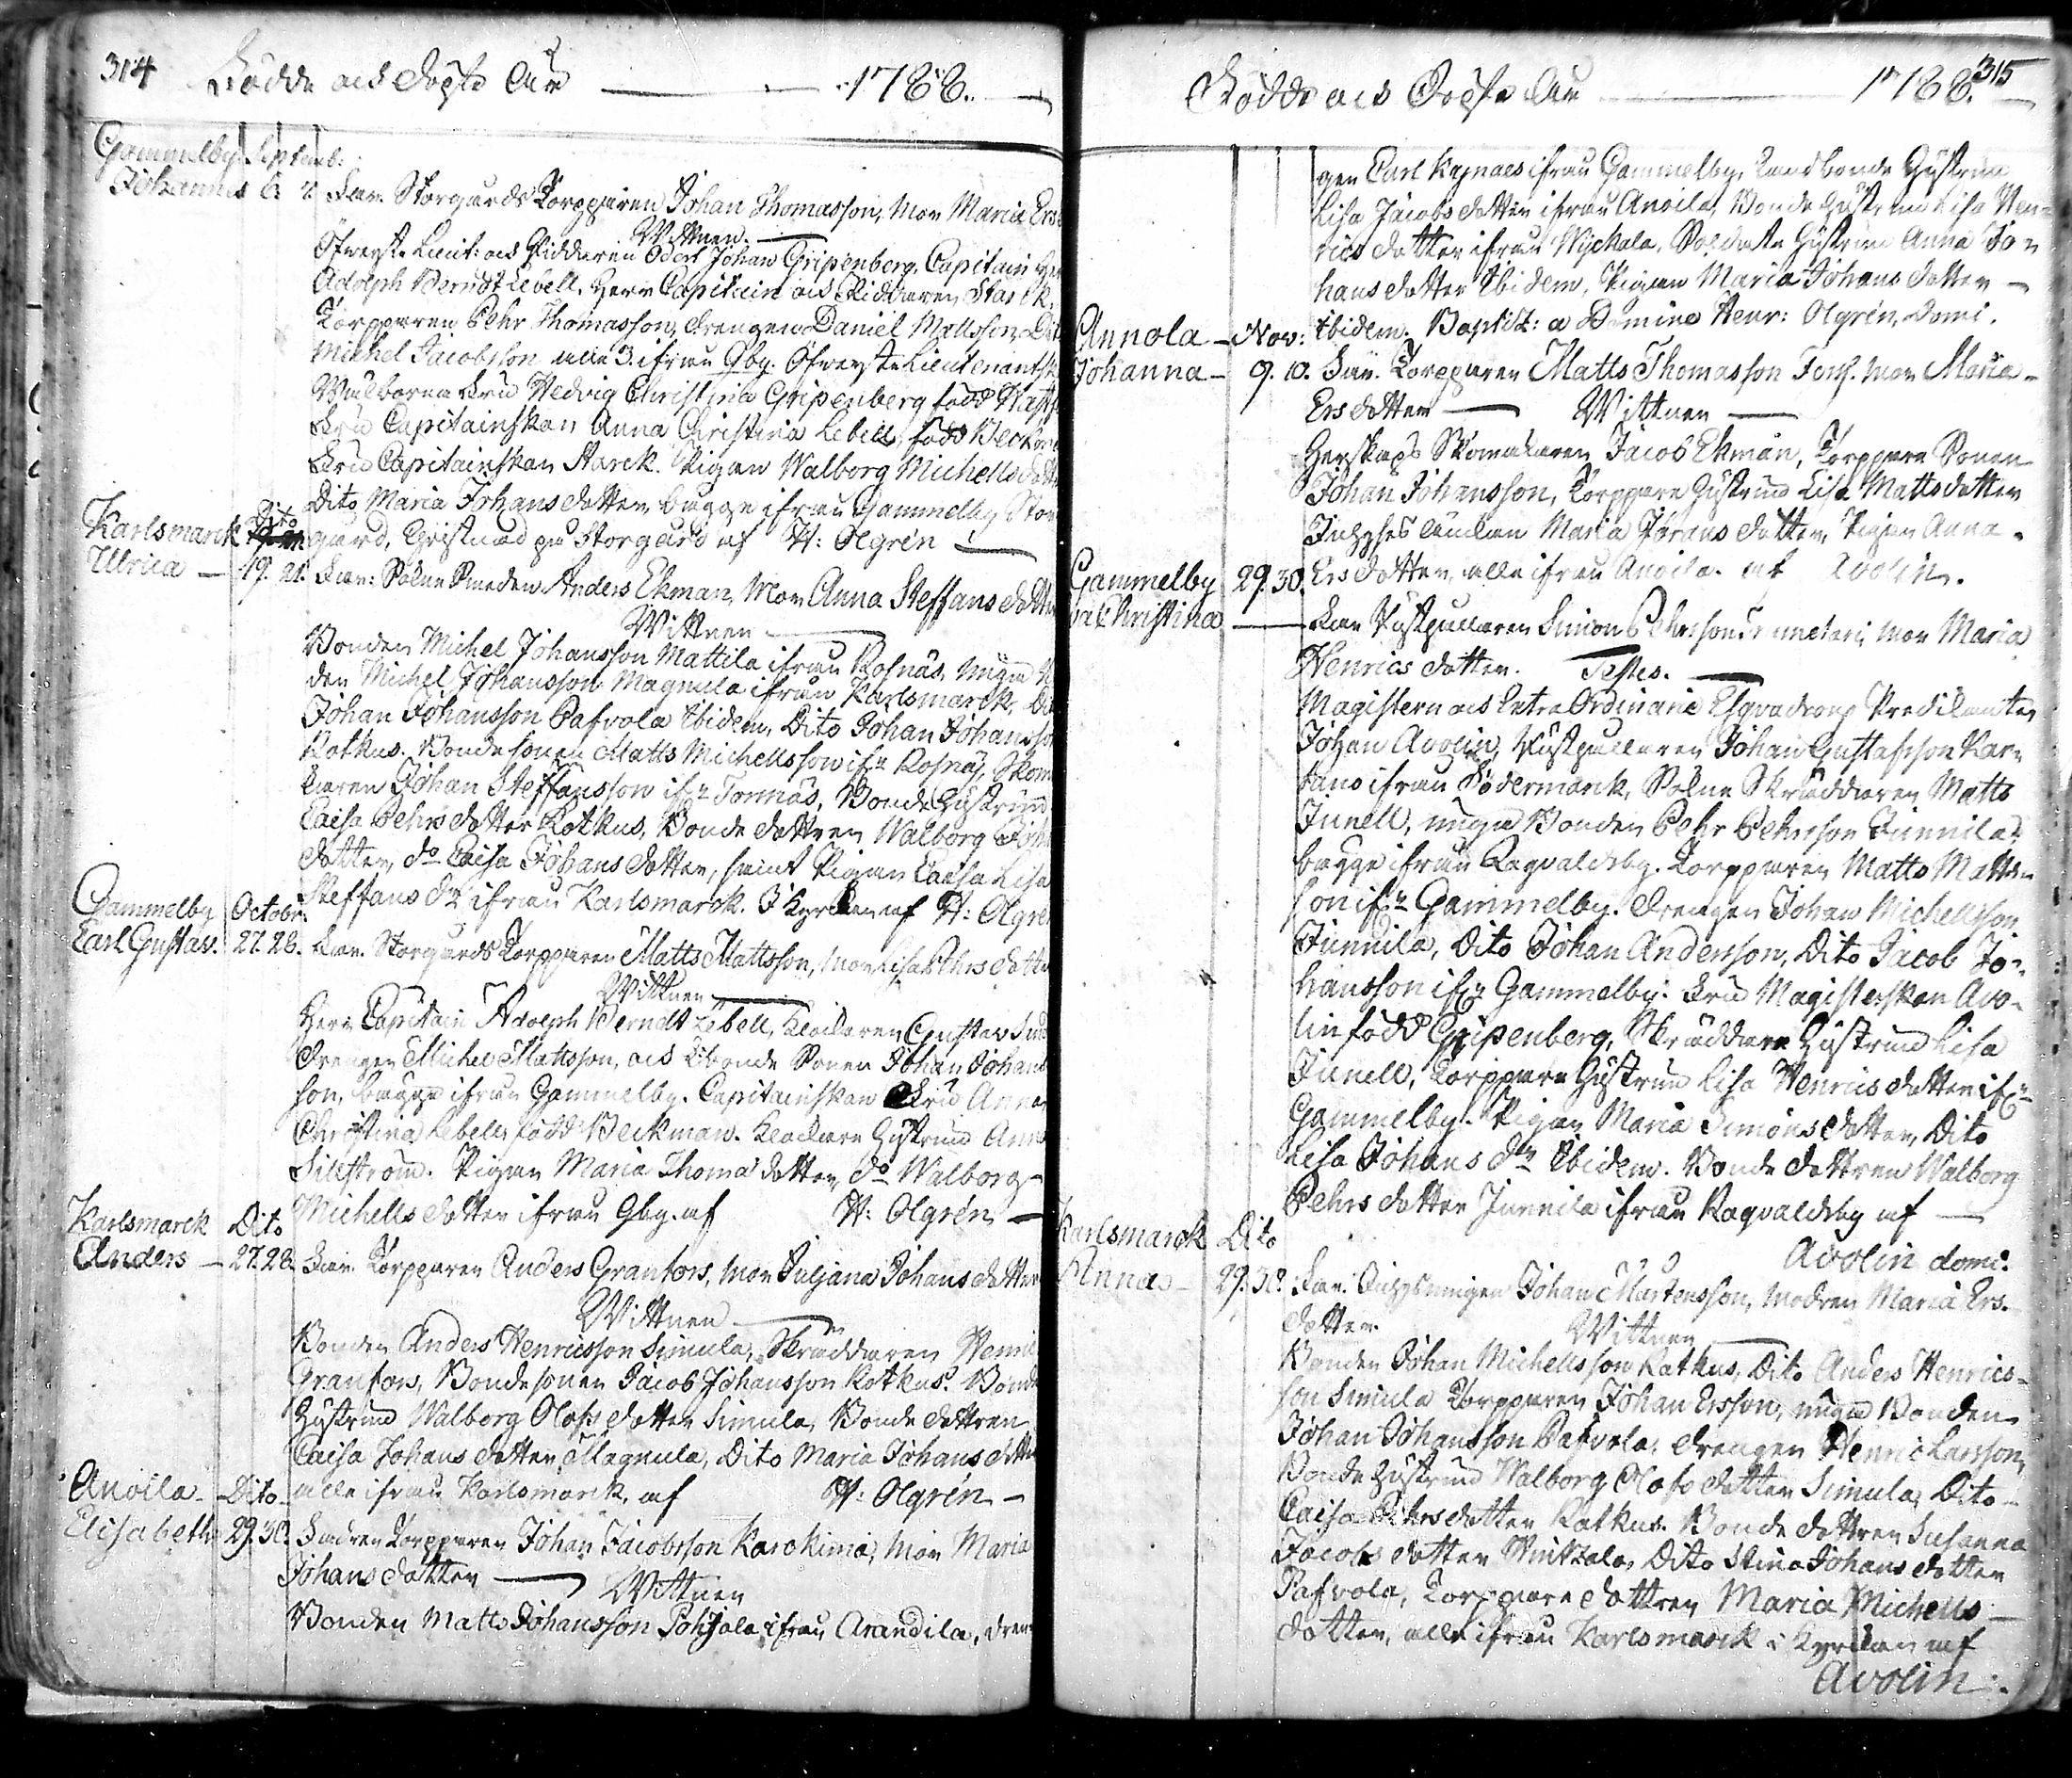 314 Födde och Döpte Åår 1788.
Gammelby Septemb:
Johannes 6. 7. Far. Storgårds Torpparen Johan Thomasson, Mor Maria Ers
Wittnen
Öfverste Lieut: och Riddaren Odert Johan Gripenberg, Capitain Her
Adolph Berndt Lebell, Herr Capitain och Riddaren Starck.
Torpparen Pehr Thomasson, drengen Daniel Mattsson, Dit
Michel Jacobsson alle 3. ifrån Gby. Öfverste Lieutenantsk
Wälborna Fru Hedvig Christina Gripenberg född
Fru Capitainskan Anna Christina Lebell, född Beckm
Fru Capitainskan Starck. Pigan Walborg Michellsdotte
Dito Maria Johansdotter bägge ifrån Gammelby Stor
Karlsmarck Dito gård, Christnad på Storgård af H: Olgrén
Ulrica 19. 21. Far: Sokne Smeden Anders Ekman, Mor Anna Steffansdotter
Wittnen
Bonden Michel Johansson Mattila ifrån Rosnäs, unga
den Michel Johansson Magnula ifrån Karlsmarck, Dit
Johan Johansson Pafvola Ibidem, Dito Johan Johansson
Kotkus. Bondesonen Matts Michellsson ifn Rosnäs, Skom
karen Johan Steffansson ifn Tornnäs, Bonde Hustrun
Caisa Pehrsdotter Kotkus, Bonde dottren Walborg Joha
dotter, do Caisa Johansdotter, samt Pigan Caisa Lisa
Steffans dr ifrån Karlsmarck. I Kyrkan af H: Olgrén
Gammelby Octobr:
Carl Gustav. 27. 28. Far. Storgårds Torpparen Matts Mattsson, Mor Lisa Pehrsdotter
Wittnen
Herr Capitain Adolph Berndt Lebell, Klockaren Gustav
drengen Michel Mattsson, och Bonde Sonen Johan Johans
son, bägge ifrån Gammelby. Capitainskan Fru Anna
Christina Lebell, född Beckman. Klockare Hustrun Anna
Silfström. Pigan Maria Thomædotter, do Walborg
Michellsdotter ifrån Gby. af H: Olgrén
Karlsmarck Dito
Anders 27. 28. Far. Torpparen Anders Granfors, Mor Juljana Johansdotter
Wittnen
Bonden Anders Henricsson Simula, Skräddaren Henric
Granfors, Bondesonen Jacob Johansson Kotkus. Bonde
Hustrun Walborg Olofsdotter Simula, Bonde dottren
Caisa Johansdotter Magnula, Dito Maria Johansdotter
Anoila Dito alle ifrån Karlsmarck, af H: Olgrén
Elisabeth 29. 30. Fadren Torpparen Johan Jacobsson Karckima, Mor Maria
Johansdotter Wittnen
Bonden Matts Johansson Pohjola ifrån Arandila, dren
Födde och Döpte Åår 1788. 315
gen Carl Kejnaes ifrån Gammelby, Landbonde Hustrun
Lisa Jacobsdotter ifrån Anoila, Bonde Hustrun Lisa Hen-
ricsdotter ifrån Nyckala, Soldate Hustrun Anna Jo-
hansdotter Ibidem, Pigan Maria Johansdotter
Annola Nov: Ibidem. Baptist: a Domine Henr: Olgrén, Domi.
Johanna 9. 10. Far. Torpparen Matts Thomasson Fors. Mor Maria
Ersdotter Wittnen
Herskaps Skomakaren Jacob Ekman, Torppare Sonen
Johan Johansson, Torppare Hustrun Lisa Mattsdotter
Maria Joransdotter, Pigan Anna
Gammelby 29. 30. Ersdotter, alle ifrån Anoila. af Avolin.
Christina Far Simon Pehrsson, Mor Maria
Henricsdotter. Testes.
Magistern och Extra Ordinarie Esquadrons Predikanten
Johan Avolin, Johan Gustafsson Kar-
tano ifrån Södermarck, Sokne Skräddaren Matts
Junell, unga Bonden Pehr Pehrsson Junnila
bägge ifrån Ragvaldsby. Torpparen Matts Matts-
son ifn Gammelby. drengen Johan Michellsson
Junnila, Dito Johan Andersson, Dito Jacob Jo-
hansson ifn Gammelby. Fru Magisterskan Avo-
lin född Gripenberg, Skräddare Hustrun Lisa
Junell, Torppare Hustrun Lisa Henricsdotter ifn
Gammelby. Pigan Maria Simonsdotter, Dito
Lisa Johans dr Ibidem. Bonde dottren Walborg
Pehrsdotter Junnila ifrån Ragvaldsby af
Karlsmarck Dito Avolin domi.
Anna 29. 30. Far. Johan Mårtensson, Modren Maria Ers-
dotter. Wittnen
Bonden Johan Michellsson Kotkus, Dito Anders Henrics-
son Simula Torpparen Johan Ersson, unga Bonden
Johan Johansson Pafvola, drengen Henric Larsson,
Bonde Hustrun Walborg Olofsdotter Simula, Dito
Caisa Pehrsdotter Kotkus. Bonde dottren Susanna
Jacobsdotter, Dito Stina Johansdotter
Pafvola, Torppare dottren Maria Michells-
dotter, alle ifrån Karlsmarck i Kyrkan af
Avolin.